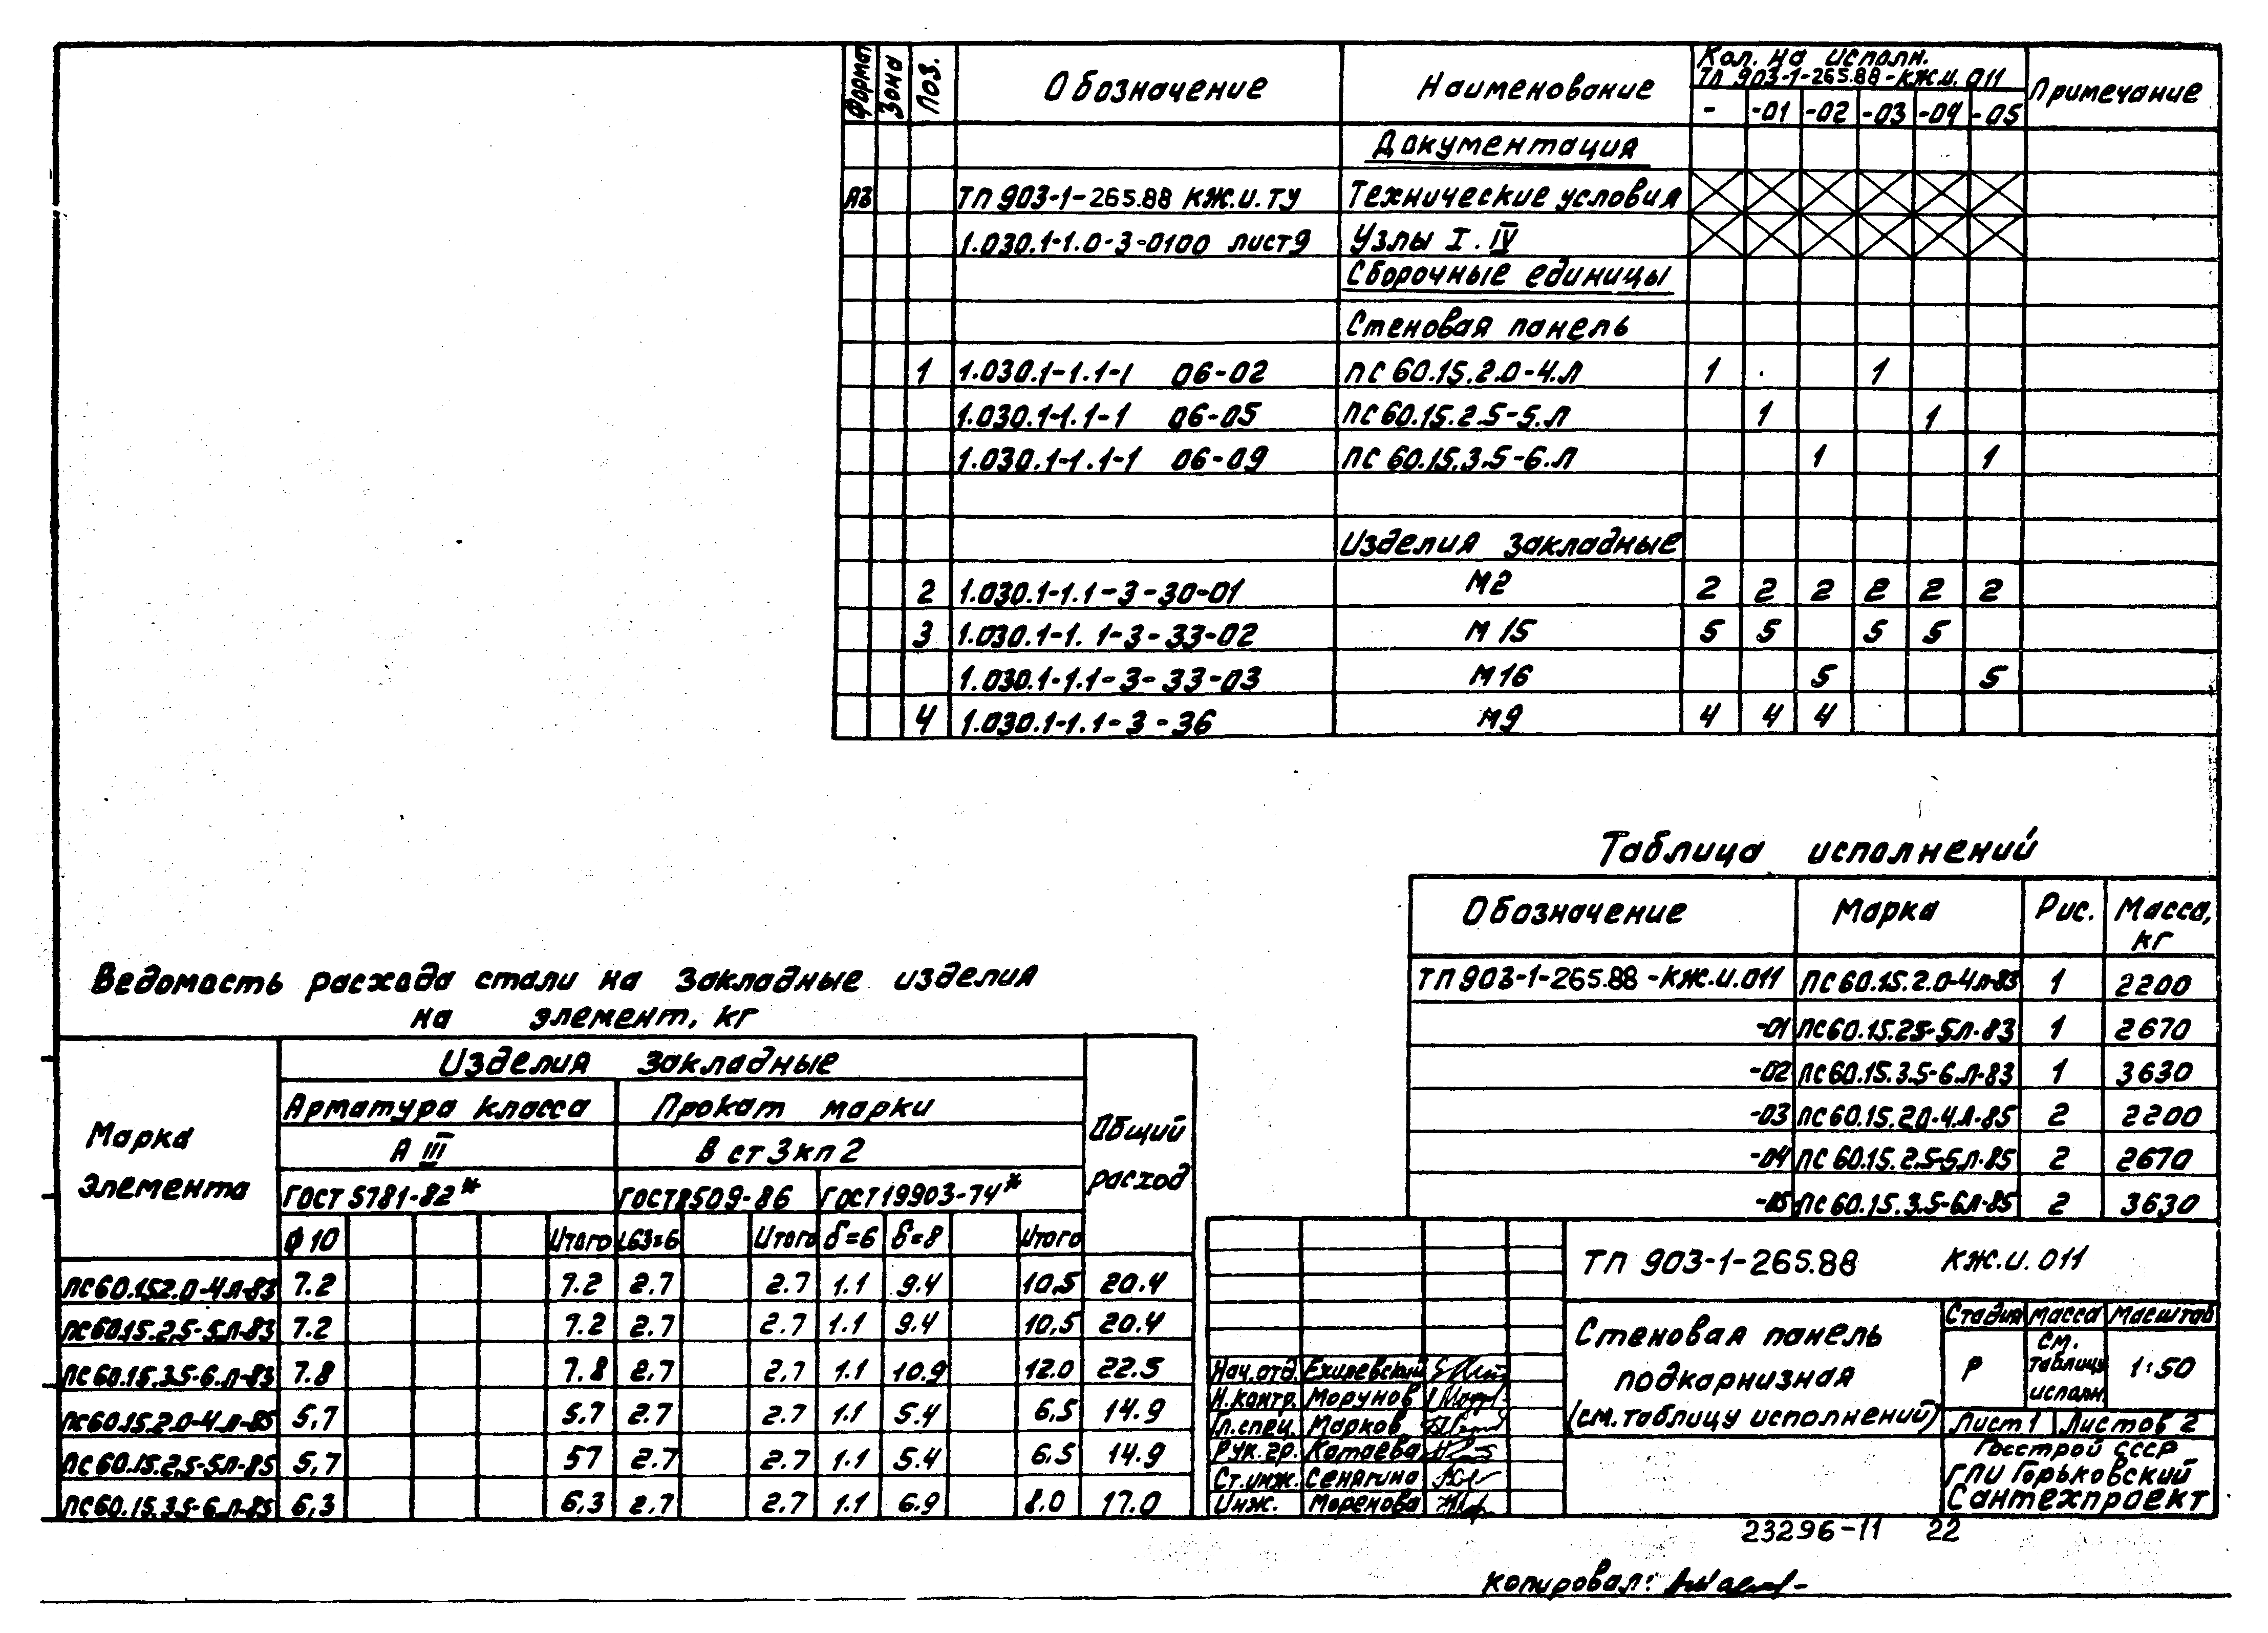 Формат Зона Поз. Обозначение Наименование Кол. на исполн. Примечание
ТП 903-1-265.88-КЖ.И.011
- -01 -02 -03 -04 -05
Документация
А3 ТП 903-1-265.88 КЖ.И.ТУ Технические условия
1.030.1-1.0-3-0100 лист9 Узлы I. IV
Сборочные единицы
Стеновая панель
1 1.030.1-1.1-1 06-02 ПС 60.15.2.0-4.Л 1 1
1.030.1-1.1-1 06-05 ПС 60.15.2.5-5.Л 1 1
1.030.1-1.1-1 06-09 ПС 60.15.3.5-6.Л 1 1
Изделия закладные
2 1.030.1-1.1-3-30-01 М2 2 2 2 2 2 2
3 1.030.1-1.1-3-33-02 М15 5 5 5 5
1.030.1-1.1-3-33-03 М16 5 5
4 1.030.1-1.1-3-36 М9 4 4 4
Таблица исполнений
Обозначение Марка Рис. Масса, кг
ТП 903-1-265.88-КЖ.И.011 ПС 60.15.2.0-4Л-83 1 2200
-01 ПС 60.15.25-5Л-83 1 2670
-02 ПС 60.15.3.5-6.Л-83 1 3630
-03 ПС 60.15.2.0-4.Л-85 2 2200
-04 ПС 60.15.2.5-5.Л-85 2 2670
-05 ПС 60.15.3.5-6Л-85 2 3630
Ведомость расхода стали на закладные изделия
на элемент, кг
Марка элемента Изделия закладные Общий расход
Арматура класса Прокат марки
А III В ст 3 кп 2
ГОСТ 5781-82* ГОСТ 8509-86 ГОСТ 19903-74*
ф10 Итого L63×6 Итого δ=6 δ=8 Итого
ПС 60.15.2.0-4Л-83 7.2 7.2 2.7 2.7 1.1 9.4 10,5 20.4
ПС 60.15.2.5-5.Л-83 7.2 7.2 2.7 2.7 1.1 9.4 10,5 20.4
ПС 60.15.3.5-6.Л-83 7.8 7.8 2.7 2.7 1.1 10.9 12.0 22.5
ПС 60.15.2.0-4.Л-85 5,7 5.7 2.7 2.7 1.1 5.4 6,5 14.9
ПС 60.15.2.5-5Л-85 5,7 57 2.7 2.7 1.1 5.4 6,5 14.9
ПС 60.15.3.5-6.Л-85 6,3 6,3 2.7 2.7 1.1 6.9 8.0 17.0
ТП 903-1-265.88 КЖ.И.011
Стеновая панель
подкарнизная
(см. таблицу исполнений)
Стадия Масса Масштаб
Р См. таблицу исполн. 1:50
Лист 1 Листов 2
Госстрой СССР
ГПИ Горьковский
Сантехпроект
Нач.отд.
Н.контр. Морунов
Гл.спец. Марков
Рук.гр. Катаева
Ст.инж. Сенягина
Инж. Моренова
23296-11 22
Копировал: